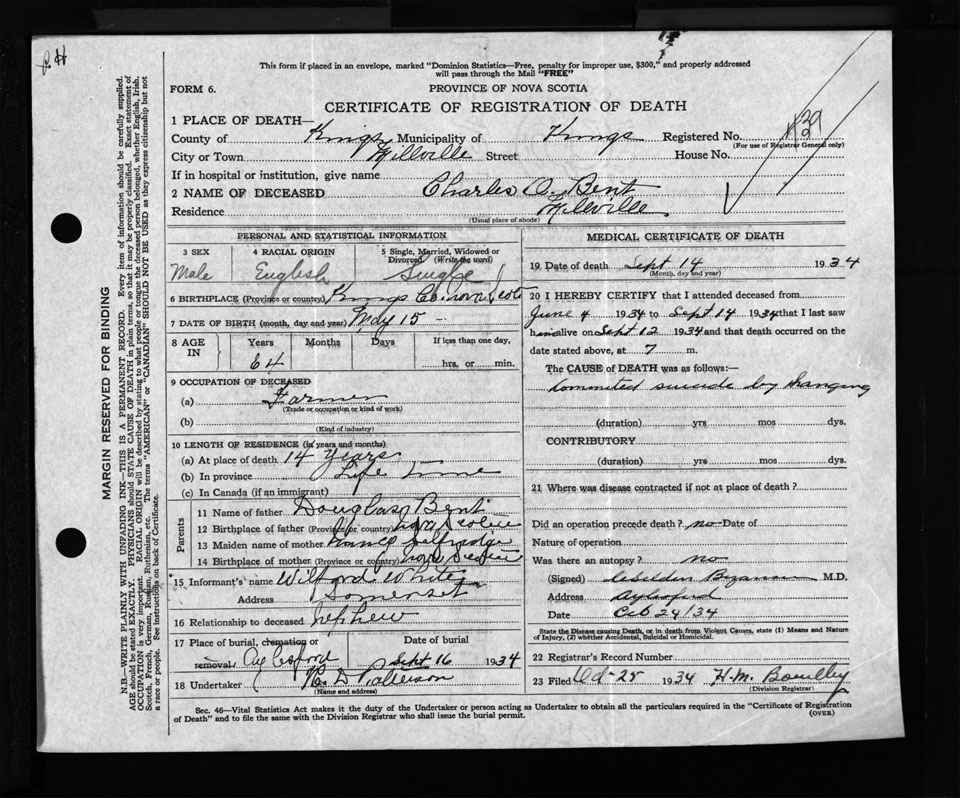 This form if placed in an envelope, marked "Dominion Statistics—Free, penalty for improper use, $300," and properly addressed
will pass through the Mail "FREE"
FORM 6.
PROVINCE OF NOVA SCOTIA
CERTIFICATE OF REGISTRATION OF DEATH
1 PLACE OF DEATH—
County of Kings Municipality of Kings Registered No.
(For use of Registrar General only)
City or Town Millville Street House No.
If in hospital or institution, give name
2 NAME OF DECEASED Charles O. Bent
Residence Millville
(Usual place of abode)
PERSONAL AND STATISTICAL INFORMATION
3 SEX 4 RACIAL ORIGIN 5 Single, Married, Widowed or
Divorced (Write the word)
Male English Single
6 BIRTHPLACE (Province or country) Kings Co Nova Scotia
7 DATE OF BIRTH (month, day and year) May 15 —
8 AGE IN Years Months Days If less than one day,
64 hrs. or min.
9 OCCUPATION OF DECEASED
(a) Farmer
(Trade or occupation or kind of work)
(b)
(Kind of industry)
10 LENGTH OF RESIDENCE (in years and months)
(a) At place of death 14 Years
(b) In province Life Time
(c) In Canada (if an immigrant)
Parents
11 Name of father Douglas Bent
12 Birthplace of father (Province or country) Nova Scotia
13 Maiden name of mother
14 Birthplace of mother (Province or country) Nova Scotia
15 Informant's name Wilford White
Address Somerset
16 Relationship to deceased Nephew
17 Place of burial, cremation or Date of burial
removal Aylesford Sept 16 1934
18 Undertaker D Patterson
(Name and address)
MEDICAL CERTIFICATE OF DEATH
19 Date of death Sept 14 1934
(Month, day and year)
20 I HEREBY CERTIFY that I attended deceased from
June 4 1934 to Sept 14 1934 that I last saw
him alive on Sept 12 1934 and that death occurred on
date stated above, at 7 m.
The CAUSE of DEATH was as follows:—
Commited suicide by hanging
(duration) yrs mos dys.
CONTRIBUTORY
(duration) yrs mos dys.
21 Where was disease contracted if not at place of death?
Did an operation precede death? no Date of
Nature of operation
Was there an autopsy? no
(Signed) M.D.
Address Aylesford
Date Oct 24/34
State the Disease causing Death, or in death from Violent Causes, state (1) Means and Nature
of Injury, (2) whether Accidental, Suicidal or Homicidal.
22 Registrar's Record Number
23 Filed Oct-25 1934 H.M.
(Division Registrar)
Sec. 46—Vital Statistics Act makes it the duty of the Undertaker or person acting as Undertaker to obtain all the particulars required in the "Certificate of Registration
of Death" and to file the same with the Division Registrar who shall issue the burial permit.
(OVER)
MARGIN RESERVED FOR BINDING
N.B.—WRITE PLAINLY WITH UNFADING INK—THIS IS A PERMANENT RECORD. Every item of information should be carefully supplied.
AGE should be stated EXACTLY. PHYSICIANS should STATE CAUSE OF DEATH in plain terms, so that it may be properly classified. Exact statement of
OCCUPATION is very important. RACIAL ORIGIN will be described by stating to what people or tongue the deceased person belonged, whether English, Irish,
Scotch, French, German, Russian, Ruthenian, etc. The terms "AMERICAN" or "CANADIAN" SHOULD NOT BE USED as they express citizenship but not
a race or people. See instructions on back of Certificate.